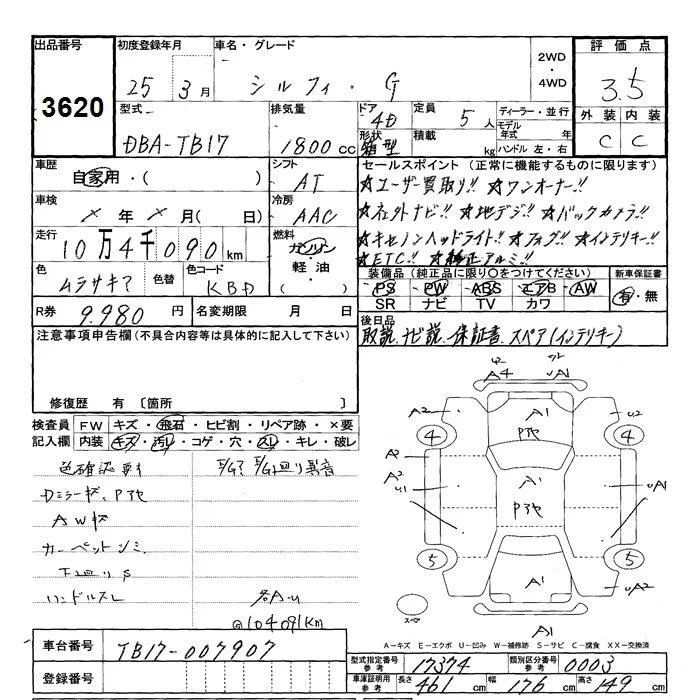 出品番号
3620
初度登録年月
25年3月
車名・グレード
シルフィ・G
2WD
・
4WD
評価点
3.5
外装 内装
C C
型式
DBA-TB17
排気量
1800cc
ドア
4D
形状
箱型
定員
5人
積載
kg
ディーラー・並行
モデル年式 年
ハンドル 左・右
車歴
自家用・( )
シフト
AT
車検
× 年 × 月( 日)
冷房
AAC
走行
10万4千090km
燃料
ガソリン
軽油
・( )
色
ムラサキ?
色替
色コード
KBD
R券
9.980円
名変期限 月 日
セールスポイント(正常に機能するものに限ります)
☆ユーザー買取り!! ☆ワンオーナー!!
☆社外ナビ!! ☆地デジ!! ☆バックカメラ!!
☆キセノンヘッドライト!! ☆フォグ!! ☆インテリキー!!
☆ETC!! ☆純正アルミ!!
装備品(純正品に限り○をつけてください)
PS PW ABS エアB AW
SR ナビ TV カワ
新車保証書
有・無
後日品
取説、ナビ説、保証書、スペア(インテリキー)
注意事項申告欄(不具合内容等は具体的に記入して下さい)
修復歴 有 〔箇所
検査員記入欄
FW キズ・飛石・ヒビ割・リペア跡・×要
内装 キズ・汚れ・コゲ・穴・スレ・キレ・破レ
色確認要す
Dミラーキズ、Pアセ
AWキズ
カーペットシミ
下廻りS
ハンドルスレ
E/G? E/G廻り異音
各A・U
@104091km
A4 UA1
A2 A1 U2
Pアセ
4 4
A2
A2 A1 UA1
U1
Pアセ
5 5
A1 UA2
スペア
A1
A-キズ E-エクボ U-凹み W-補修跡 S-サビ C-腐食 XX-交換済
車台番号
TB17-007907
登録番号
型式指定番号
参考
17374
類別区分番号
参考
0003
車庫証明用
参考
長さ 461cm 幅 176cm 高さ 149cm